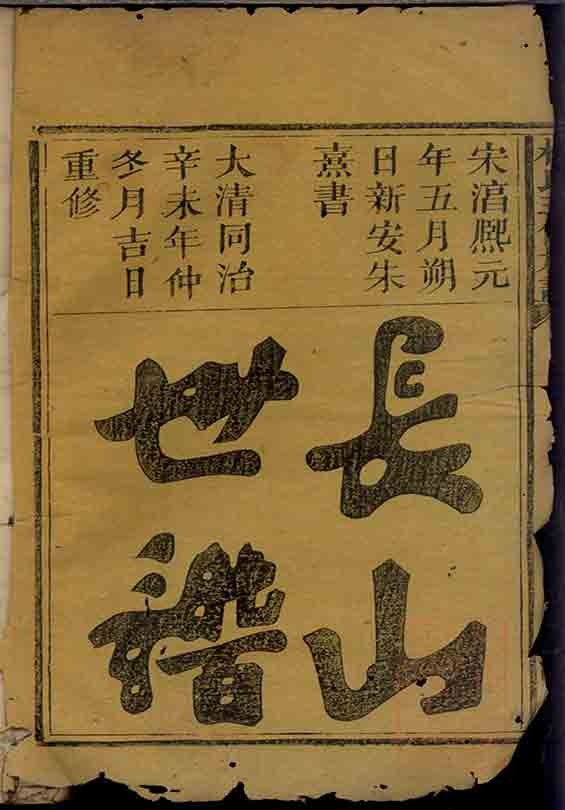 宋淳熈元
年五月朔
日新安朱
熹書
大清同治
辛未年仲
冬月吉日
重修
長山
世譜